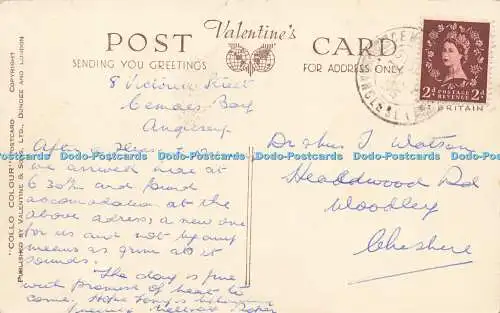 "COLLO COLOUR" POSTCARD COPYRIGHT
PUBLISHED BY VALENTINE & SONS, LTD., DUNDEE AND LONDON
POST Valentine's CARD
SENDING YOU GREETINGS
FOR ADDRESS ONLY
2d POSTAGE REVENUE 2d
BRITAIN
ANGLESEY
8 Victoria Street
Cemaes Bay
Anglesey
After a
we arrived here at
6 30pm and found
accomodation at the
above adress, a new one
for us and not by any
means as grim as it
sounds.
The day is fine
with promise of heat to
come. Hope
Dr & Mrs T Watson
Headdwood Rd
Woodley
Cheshire
Dodo-Postcards Dodo-Postcards Dodo-Postcards Dodo-Postcards Dodo-Postcards Dodo-Postcards